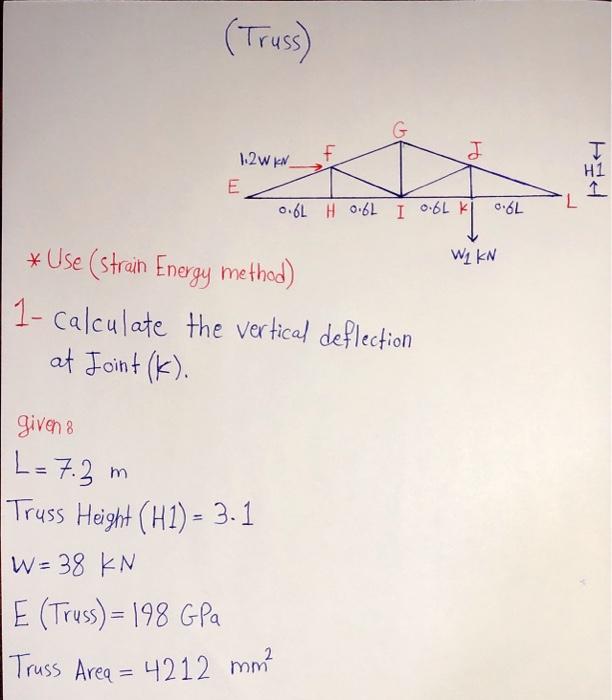 (Truss)
G
1.2W kN F J
H1
E
0.6L H 0.6L I 0.6L K 0.6L L
W1 kN
* Use (strain Energy method)
1- Calculate the vertical deflection
at Joint (K).
given:
L = 7.3 m
Truss Height (H1) = 3.1
W = 38 kN
E (Truss) = 198 GPa
Truss Area = 4212 mm²